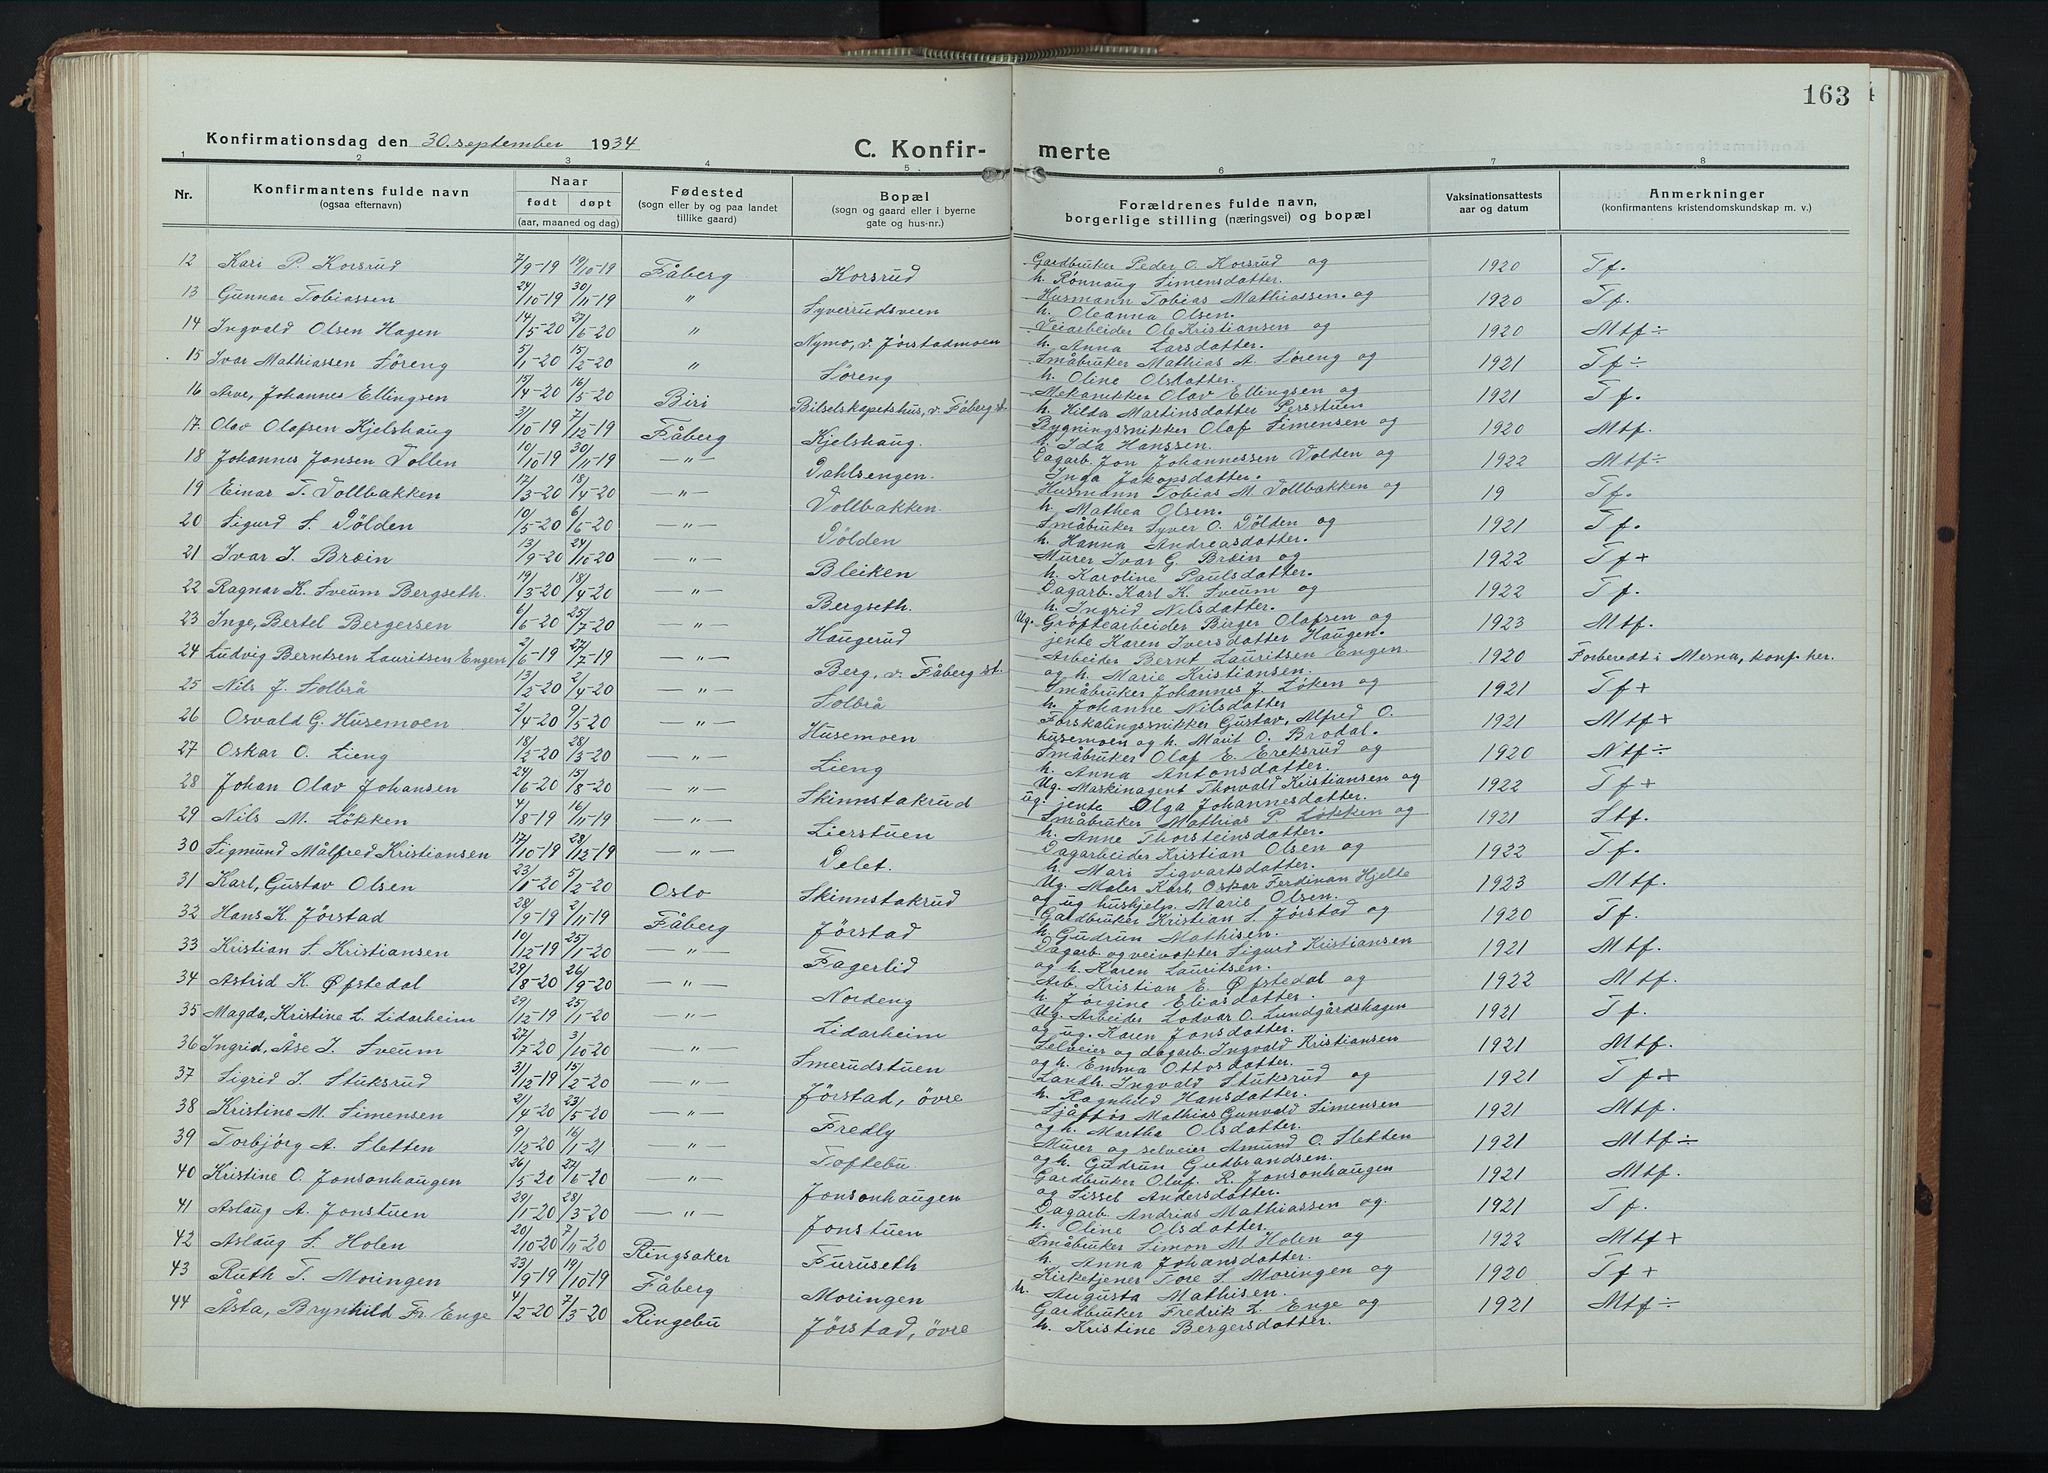 163
Konfirmationsdag den 30. september 1934
C. Konfir- merte
1 2 3 4 5 6 7 8
Nr. | Konfirmantens fulde navn (ogsaa efternavn) | Naar født døpt (aar, maaned og dag) | Fødested (sogn eller by og paa landet tillike gaard) | Bopæl (sogn og gaard eller i byerne gate og hus-nr.) | Forældrenes fulde navn, borgerlige stilling (næringsvei) og bopæl | Vaksinationsattests aar og datum | Anmerkninger (konfirmantens kristendomskundskap m. v.)
12 Kari P. Korsrud 7/9-19 19/10-19 Fåberg Korsrud Gardbruker Peder O. Korsrud og h. Rønnaug Simensdatter. 1920 Tf.
13 Gunnar Tobiassen 24/10-19 30/11-19 " Syverrudsveen Husmann Tobias Mathiassen og h. Oleanna Olsen. 1920 Tf.
14 Ingvald Olsen Hagen 14/5-20 27/6-20 " Nymo, v. Jørstadmoen Veiarbeider Ole Kristiansen og h. Anna Larsdatter. 1920 Mtf÷
15 Ivar Mathiassen Søreng 5/1-20 15/2-20 " Søreng Småbruker Mathias A. Søreng og h. Oline Olsdatter. 1921 Tf÷
16 Arve, Johannes Ellingsen 15/4-20 16/5-20 Biri Bilselskapetshus, v. Fåberg st. Mekanikker Olav Ellingsen og h. Hilda Martinsdatter Persstuen 1921 Tf.
17 Olav Olafsen Kjelshaug 3/10-19 7/12-19 Fåberg Kjelshaug. Bygningssnikker Olaf Simensen og h. Ida Hanssen. 1920 Mtf.
18 Johannes Jonsen Vollen 10/10-19 30/11-19 — " — Dahlsengen. Dagarb. Jon Johannessen Volden og Inga Jakopsdatter. 1922 Mtf÷
19 Einar T. Vollbakken 17/3-20 18/4-20 — " — Vollbakken. Husmann Tobias M. Vollbakken og h. Mathea Olsen. 19 Tf.
20 Sigurd S. Dølden 10/5-20 6/6-20 — " — Dølden Småbruker Syver O. Dølden og h. Hanna Andreasdatter. 1921 Tf.
21 Ivar I. Bræin 13/9-20 24/10-20 — " — Bleiken Murer Ivar G. Bræin og h. Karoline Paulsdatter. 1922 Tf+
22 Ragnar K. Sveum Bergseth. 19/3-20 18/4-20 — " — Bergseth. Dagarb. Karl K. Sveum og h. Ingrid Nilsdatter. 1922 Tf.
23 Inge, Bertel Bergersen 6/6-20 25/7-20 — " — Haugerud Ug. Grøftearbeider Birger Olafsen og jente Karen Iversdatter Haugen. 1923 Mtf.
24 Ludvig Berntsen Lauritsen Engen 2/6-19 27/7-19 — " — Berg, v. Fåberg st. Arbeider Bernt Lauritsen Engen. og h. Marie Kristiansen. 1920 Forberedt i Mesna, konf. her.
25 Nils J. Solbrå 13/2-20 2/4-20 — " — Solbrå Småbruker Johannes J. Løken og h. Johanne Nilsdatter 1921 Tf+
26 Osvald G. Husemoen 2/4-20 9/5-20 — " — Husemoen Forskalingssnikker Gustav, Alfred O. husemoen og h. Marit O. Brodal. 1921 Mtf+
27 Oskar O. Lieng 18/2-20 28/3-20 — " — Lieng Småbruker Olaf E. Ereksrud og h. Anna Antonsdatter. 1920 Ntf÷
28 Johan Olav Johansen 24/6-20 15/8-20 — " — Skinnstakrud Ug. Maskinagent Thorvald Kristiansen og ug. jente Olga Johannesdatter. 1922 Tf+
29 Nils M. Løkken 4/8-19 16/11-19 — " — Lierstuen Småbruker Mathias P. Løkken og h. Anne Thorsteinsdatter. 1921 Stf.
30 Sigmund Målfred Kristiansen 17/10-19 28/12-19 — " — Delet. Dagarbeider Kristian Olsen og h. Mari Sigvartsdatter. 1922 Tf.
31 Karl, Gustav Olsen 23/1-20 5/2-20 Oslo Skinnstakrud Ug. Maler Karl Oskar Ferdinan Hjelte og ug hushjelp. Marie Olsen. 1923 Mtf.
32 Hans K. Jørstad 28/9-19 2/11-19 Fåberg Jørstad Gardbruker Kristian S. Jørstad og h. Gudrun Mathisen. 1920 Tf.
33 Kristian S. Kristiansen 10/12-19 25/1-20 " Fagerlid Dagarb. og veivokter Sigurd Kristiansen og h. Karen Lauritsen. 1921 Mtf.
34 Astrid K. Øfstedal 29/8-20 26/9-20 — " — Nordeng Arb. Kristian E. Øfstedal og h. Jørgine Eliasdatter. 1922 Mtf.
35 Magda, Kristine L. Lidarheim 29/12-19 25/1-20 — " — Lidarheim Ug. Arbeider Lodvar O. Lundgårdshagen og ug. Karen Jonsdatter. 1921 Tf.
36 Ingrid, Åse I. Sveum 27/7-20 3/10-20 — " — Smerudstuen Selveier og dagarb. Ingvald Kristiansen og h. Emma Ottosdatter. 1921 Mtf.
37 Sigrid I. Stuksrud 31/12-19 15/2-20 — " — Jørstad, øvre Landh. Ingvald Stuksrud og h. Ragnhild Hansdatter. 1921 Tf+
38 Kristine M. Simensen 2/4-20 23/5-20 — " — Fredly Sjåfør Mathias Gunvald Simensen og h. Martha Olsdatter. 1921 Mtf.
39 Torbjørg A. Sletten 9/12-20 16/1-21 " Toftebu. Murer og selveier Amund O. Sletten og h. Gudrun Gudbrandsen. 1921 Mtf÷
40 Kristine O. Jonsonhaugen 26/5-20 27/6-20 — " — Jonsonhaugen Gardbruker Oluf R. Jonsonhaugen og Sissel Andersdatter. 1921 Mtf.
41 Aslaug A. Jonstuen 29/1-20 28/3-20 — " — Jonstuen Dagarb. Andrias Mathiassen og h. Oline Olsdatter. 1921 Tf.
42 Aslaug S. Holen 20/10-20 7/11-20 Ringsaker Furuseth Småbruker Simon M. Holen og h. Anna Johansdatter. 1922 Mtf+
43 Ruth T. Moringen 23/9-19 19/10-19 Fåberg Moringen Kirketjener Tore S. Moringen og h. Augusta Mathisen. 1920 Tf+
44 Åsta, Brynhild Fr. Enge 4/2-20 7/3-20 Ringebu Jørstad, øvre Gardbruker Fredrik L. Enge og h. Kristine Bergersdatter. 1921 Mtf÷